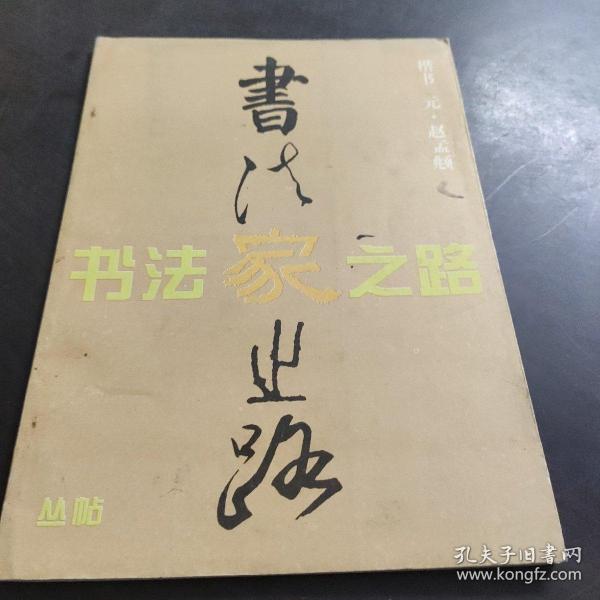 楷书 元·赵孟頫
書法家之路
书法家之路
丛帖
孔夫子旧書网
www.kongfz.com